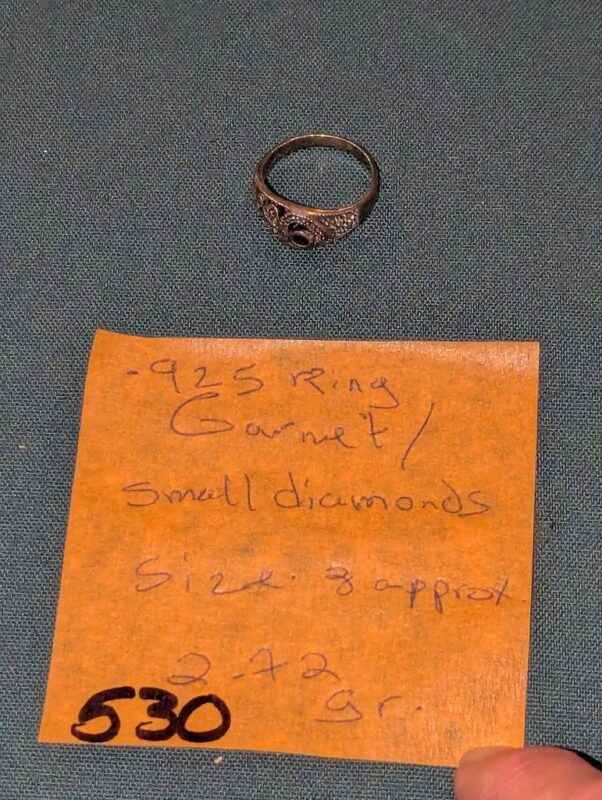 .925 ring
Garnet/
small diamonds
Size 8 approx
2.72
gr.
530